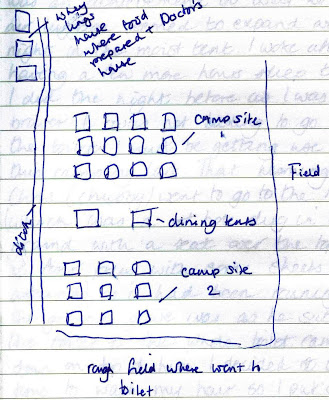 house food
where
prepared + Doctors
house
camp site
Field
dining tents
ditch
camp site
2
rough field where went to
toilet